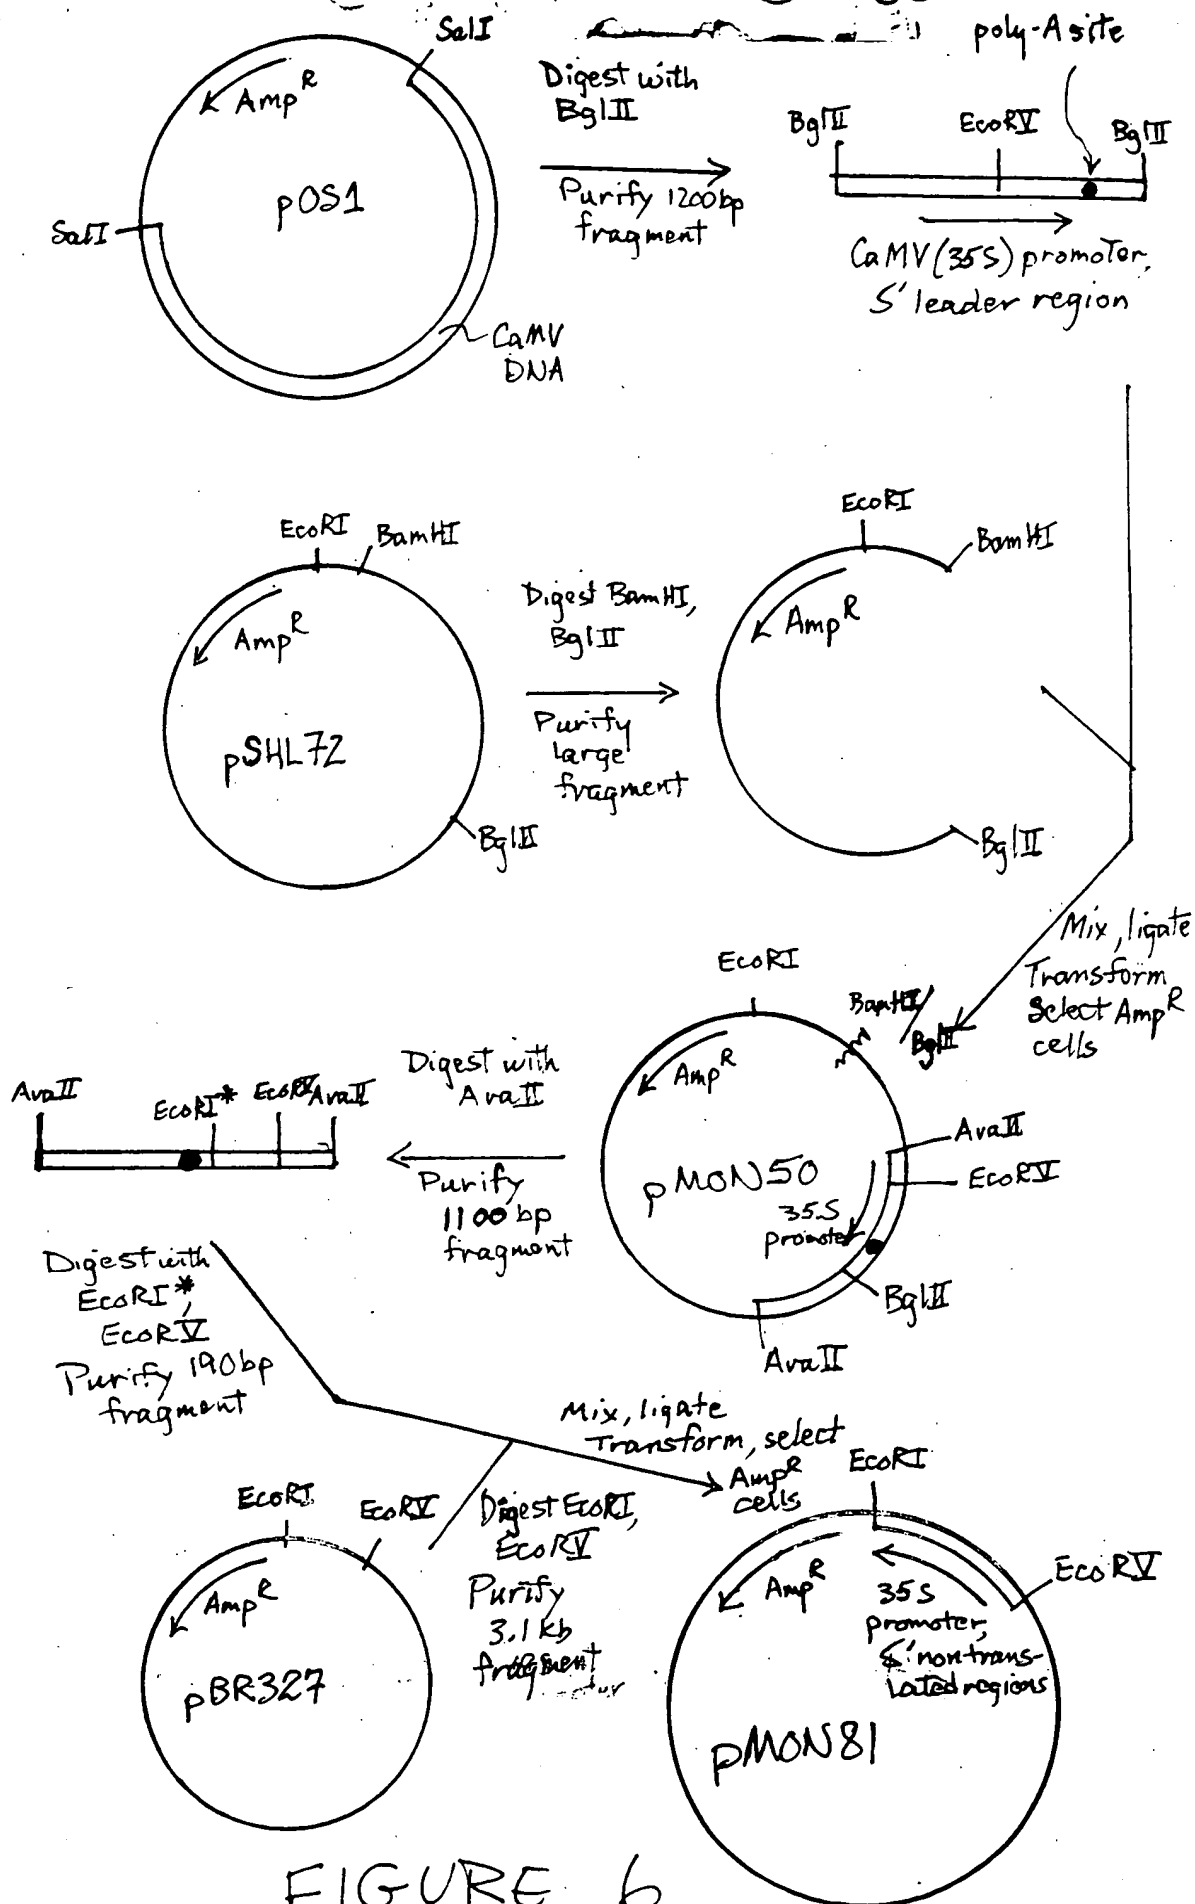 SalI
Amp^R
pOS1
SalI
CaMV
DNA
Digest with
BglII
Purify 1200bp
fragment
poly-A site
BglII
EcoRV
BglII
CaMV(35S) promoter,
5' leader region
EcoRI
BamHI
Amp^R
pSHL72
BglII
Digest BamHI,
BglII
Purify
large
fragment
EcoRI
BamHI
Amp^R
BglII
Mix, ligate
Transform
Select Amp^R
cells
EcoRI
BamHI/
BglII
Amp^R
pMON50
35S
promoter
AvaII
EcoRV
BglII
AvaII
Digest with
AvaII
Purify
1100bp
fragment
AvaII
EcoRI*
EcoRV
AvaII
Digest with
EcoRI*,
EcoRV
Purify 190bp
fragment
Mix, ligate
Transform, select
Amp^R
cells
EcoRI
EcoRV
Amp^R
pBR327
Digest EcoRI,
EcoRV
Purify
3.1kb
fragment
EcoRI
EcoRV
Amp^R
35S
promoter,
5' nontrans-
lated regions
pMON81
FIGURE 6